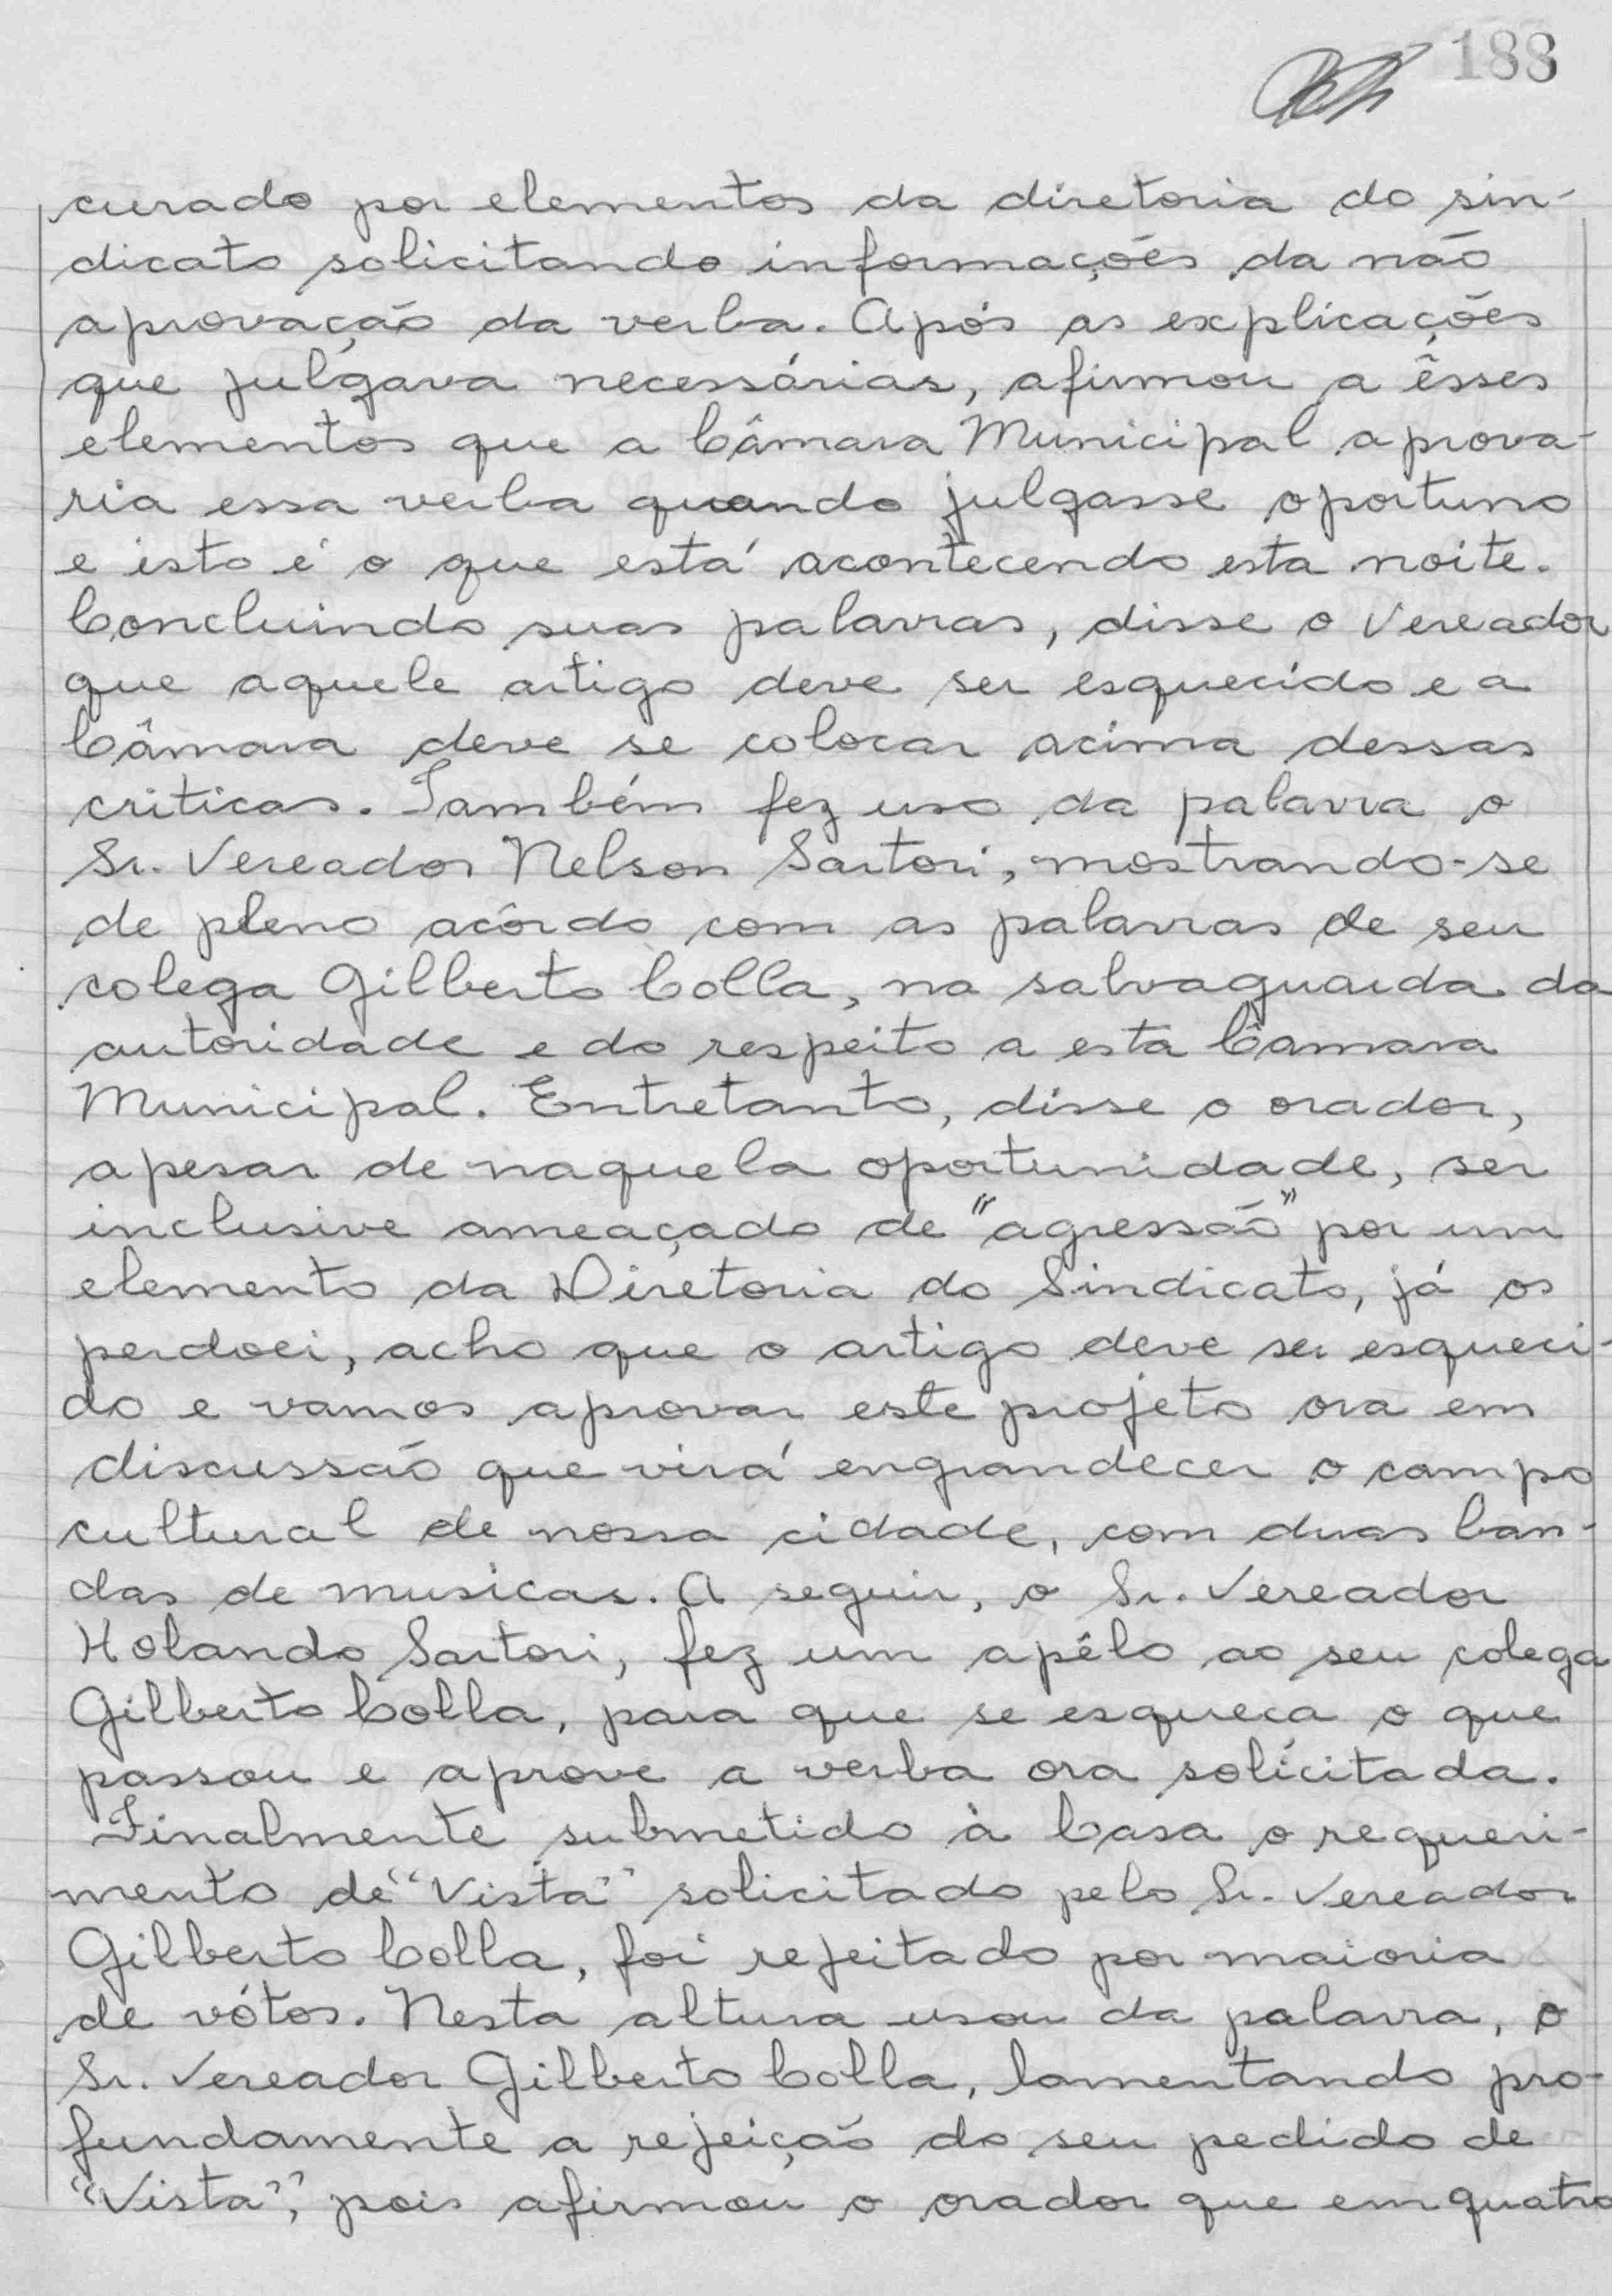 188
curado por elementos da diretoria do sin-
dicato solicitando informações da não
aprovação da verba. Após as explicações
que julgava necessárias, afirmou a êsses
elementos que a Câmara Municipal aprova-
ria essa verba quando julgasse oportuno
e isto é o que está acontecendo esta noite.
Concluindo suas palavras, disse o Vereador
que aquele artigo deve ser esquecido e a
Câmara deve se colocar acima dessas
criticas. Também fez uso da palavra o
Sr. Vereador Nelson Sartori, mostrando-se
de pleno acôrdo com as palavras de seu
colega Gilberto Colla, na salvaguarda da
autoridade e do respeito a esta Câmara
Municipal. Entretanto, disse o orador,
apesar de naquela oportunidade, ser
inclusive ameaçado de "agressão" por um
elemento da Diretoria do Sindicato, já os
perdoei, acho que o artigo deve ser esqueci-
do e vamos aprovar este projeto ora em
discussão que virá engrandecer o campo
cultural de nossa cidade, com duas ban-
das de musicas. A seguir, o Sr. Vereador
Holando Sartori, fez um apêlo ao seu colega
Gilberto Colla, para que se esqueça o que
passou e aprove a verba ora solicitada.
Finalmente submetido à Casa o requeri-
mento de "Vista" solicitado pelo Sr. Vereador
Gilberto Colla, foi rejeitado por maioria
de vótos. Nesta altura usou da palavra, o
Sr. Vereador Gilberto Colla, lamentando pro-
fundamente a rejeição do seu pedido de
"Vista", pois afirmou o orador que em quatro